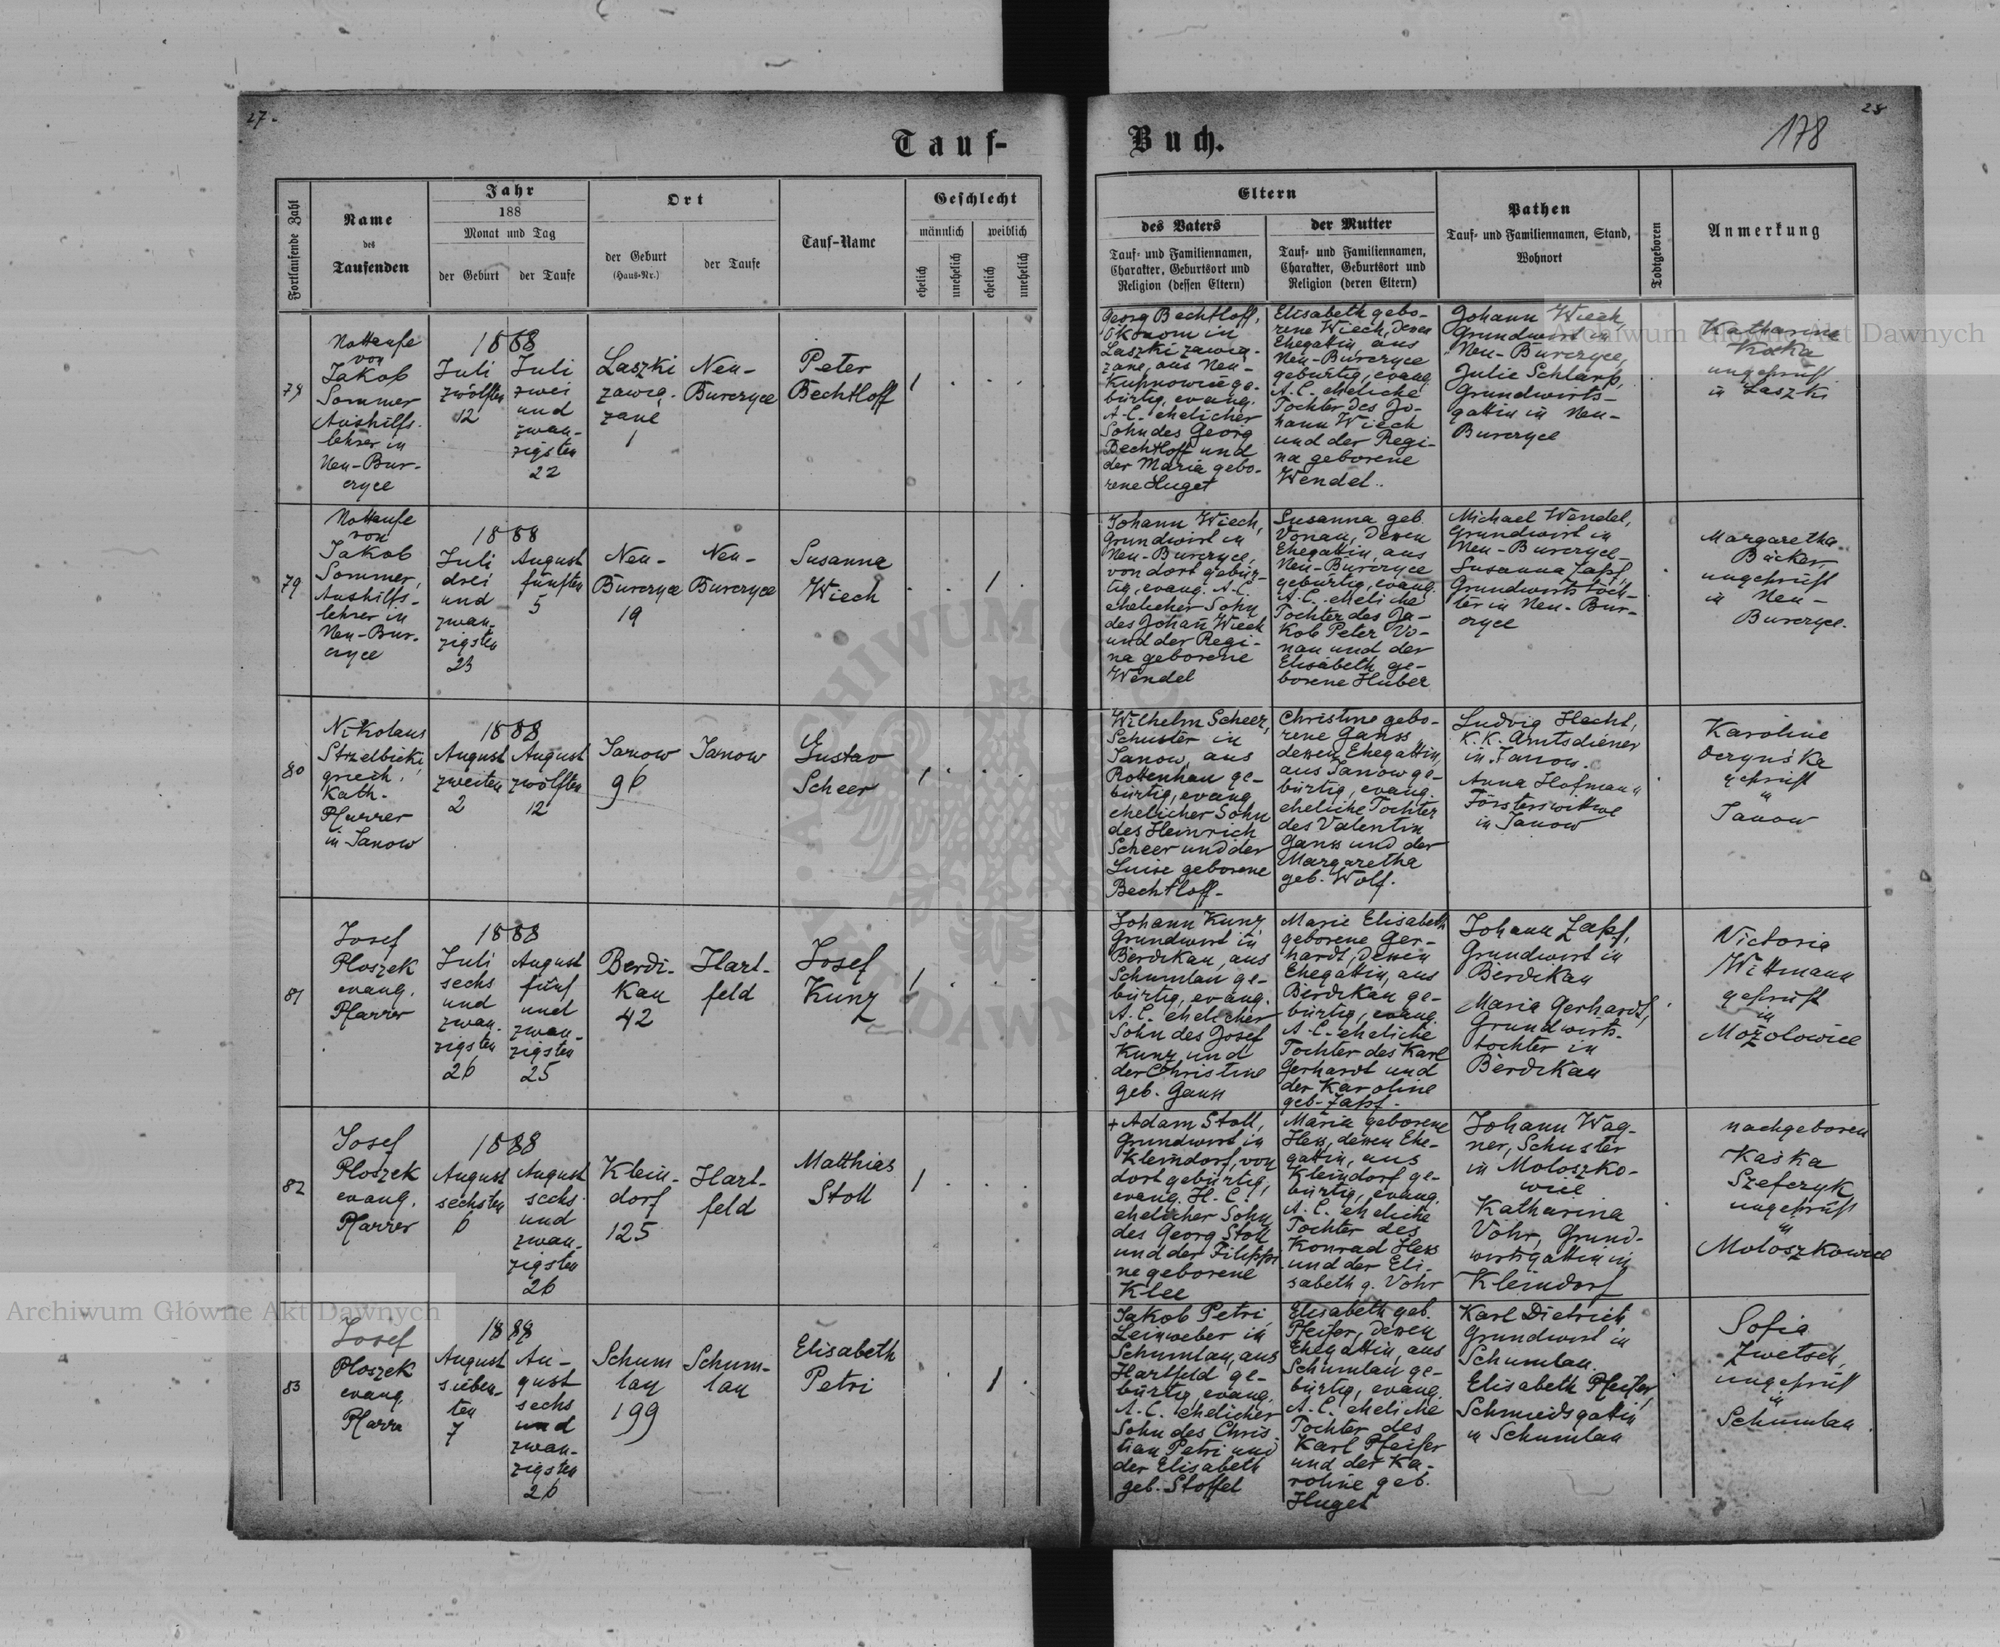 27.
28
178
Tauf-
Buch.
Fortlaufende Zahl
Name
des
Taufenden
Jahr
188
Monat und Tag
der Geburt
der Taufe
Ort
der Geburt
(Haus-Nr.)
der Taufe
Tauf-Name
Geschlecht
männlich
weiblich
ehelich
unehelich
ehelich
unehelich
Eltern
des Vaters
Tauf- und Familiennamen,
Charakter, Geburtsort und
Religion (dessen Eltern)
der Mutter
Tauf- und Familiennamen,
Charakter, Geburtsort und
Religion (deren Eltern)
Pathen
Tauf- und Familiennamen, Stand,
Wohnort
Todtgeboren
Anmerkung
Nottaufe
von
Jakob
Sommer
Aushilfs-
lehrer in
Neu-Bur-
czyce
1888
Juli
zwölften
12
Juli
zwei
und
zwan-
zigsten
22
Laszki
zawią-
zane
1
Neu-
Burczyce
Peter
Bechtloff
1
Georg Bechtloff,
Ökonom in
Laszki zawią-
zane, aus Neu-
Kupnowice ge-
bürtig, evang.
A.C. ehelicher
Sohn des Georg
Bechtloff und
der Maria gebo-
rene Huget
Elisabeth gebo-
rene Wiech, deren
Ehegattin, aus
Neu-Burczyce
gebürtig, evang.
A.C. eheliche
Tochter des Jo-
hann Wiech
und der Regi-
na geborene
Wendel.
Johann Wiech,
Grundwirt in
Neu-Burczyce,
Julie Schlarp,
Grundwirts-
gattin in Neu-
Burczyce
Katharine
ungeprüft
in Laszki
79
Nottaufe
von
Jakob
Sommer,
Aushilfs-
lehrer in
Neu-Bur-
czyce
1888
Juli
drei
und
zwan-
zigsten
23
August
fünften
5
Neu-
Burczyce
19
Neu-
Burczyce
Susanna
Wiech
1
Johann Wiech,
Grundwirt in
Neu-Burczyce,
von dort gebür-
tig, evang. A.C.
ehelicher Sohn
des Johann Wiech
und der Regi-
na geborene
Wendel
Susanna geb.
Vonau, dessen
Ehegattin, aus
Neu-Burczyce
gebürtig, evang.
A.C. eheliche
Tochter des Ja-
kob Peter Vo-
nau und der
Elisabeth ge-
borene Huber
Michael Wendel,
Grundwirt in
Neu-Burczyce-
Susanna Zapf,
Grundwirts töch-
ter in Neu-Bur-
czyce
Margaretha
Bäcker,
ungeprüft
in Neu-
Burczyce.
80
Nikolaus
Strzelbicki
griech.
Kath.
Pfarrer
in Janow
1888
August
zweiten
2
August
zwölften
12
Janow
96
Janow
Gustav
Scheer
1
Wilhelm Scheer,
Schuster in
Janow, aus
Rottenhan ge-
bürtig, evang
ehelicher Sohn
des Heinrich
Scheer und der
Luise geborene
Bechtloff-
Christine gebo-
rene Ganss
dessen Ehegattin,
aus Janow ge-
bürtig, evang.
eheliche Tochter
des Valentin
Ganss und der
Margaretha
geb. Wolf.
Ludvig Hecht,
K.K. Amtsdiener
in Janow.
Anna Hofmann
Försterswittwe
in Janow
Karoline
geprüft
in
Janow
81
Josef
Ploszek
evang.
Pfarrer
1888
Juli
sechs
und
zwan-
zigsten
26
August
fünf
und
zwan-
zigsten
25
Berdi-
kau
42
Hart-
feld
Josef
Kunz
1
Johann Kunz
Grundwirt in
Berdikau, aus
Schumlau ge-
bürtig, evang.
A.C. ehelicher
Sohn des Josef
Kunz und
der Christine
geb. Ganss
Marie Elisabeth
geborene Ger-
hardt, dessen
Ehegattin, aus
Berdikau ge-
bürtig, evang.
A.C. eheliche
Tochter des Karl
Gerhardt und
der Karoline
geb. Zapf.
Johann Zapf,
Grundwirt in
Berdikau
Maria Gerhardt,
Grundwirts-
tochter in
Berdikau
Victoria
Wittmann
geprüft
in
Możolowice
82
Josef
Ploszek
evang.
Pfarrer
1888
August
sechsten
6
August
sechs
und
zwan-
zigsten
26
Klein-
dorf
125
Hart-
feld
Matthias
Stoll
1
+ Adam Stoll,
Grundwirt in
Kleindorf, von
dort gebürtig,
evang. H.C.
ehelicher Sohn
des Georg Stoll
und der Filippi
ne geborene
Klee
Maria geborene
Hess, dessen Ehe-
gattin, aus
Kleindorf ge-
bürtig, evang.
A.C. eheliche
Tochter des
Konrad Hess
und der Eli-
sabeth g. Vohr
Johann Wag-
ner, Schuster
in Moloszko-
wice
Katharina
Vohr, Grund-
wirtsgattin in
Kleindorf
nachgeboren
Kaśka
Szefczyk,
ungeprüft
in
Moloszkowice
83
Josef
Ploszek
evang.
Pfarrer
1888
August
sieben-
ten
7
Au-
gust
sechs
und
zwan-
zigsten
26
Schum
lau
199
Schum-
lau
Elisabeth
Petri
1
Jakob Petri,
Leinweber in
Schumlau, aus
Hartfeld ge-
bürtig, evang.
A.C. ehelicher
Sohn des Chris
tian Petri und
der Elisabeth
geb. Stoffel
Elisabeth geb.
Pfeifer, dessen
Ehegattin, aus
Schumlau ge-
bürtig, evang.
A.C. eheliche
Tochter des
Karl Pfeifer
und der Ka-
roline geb.
Huget
Karl Dietrich
Grundwirt in
Schumlau.
Elisabeth Pfeifer,
Schmiedsgattin
in Schumlau
Sofia
Zwetsch,
ungeprüft
in
Schumlau
Archiwum Główne Akt Dawnych
Archiwum Główne Akt Dawnych